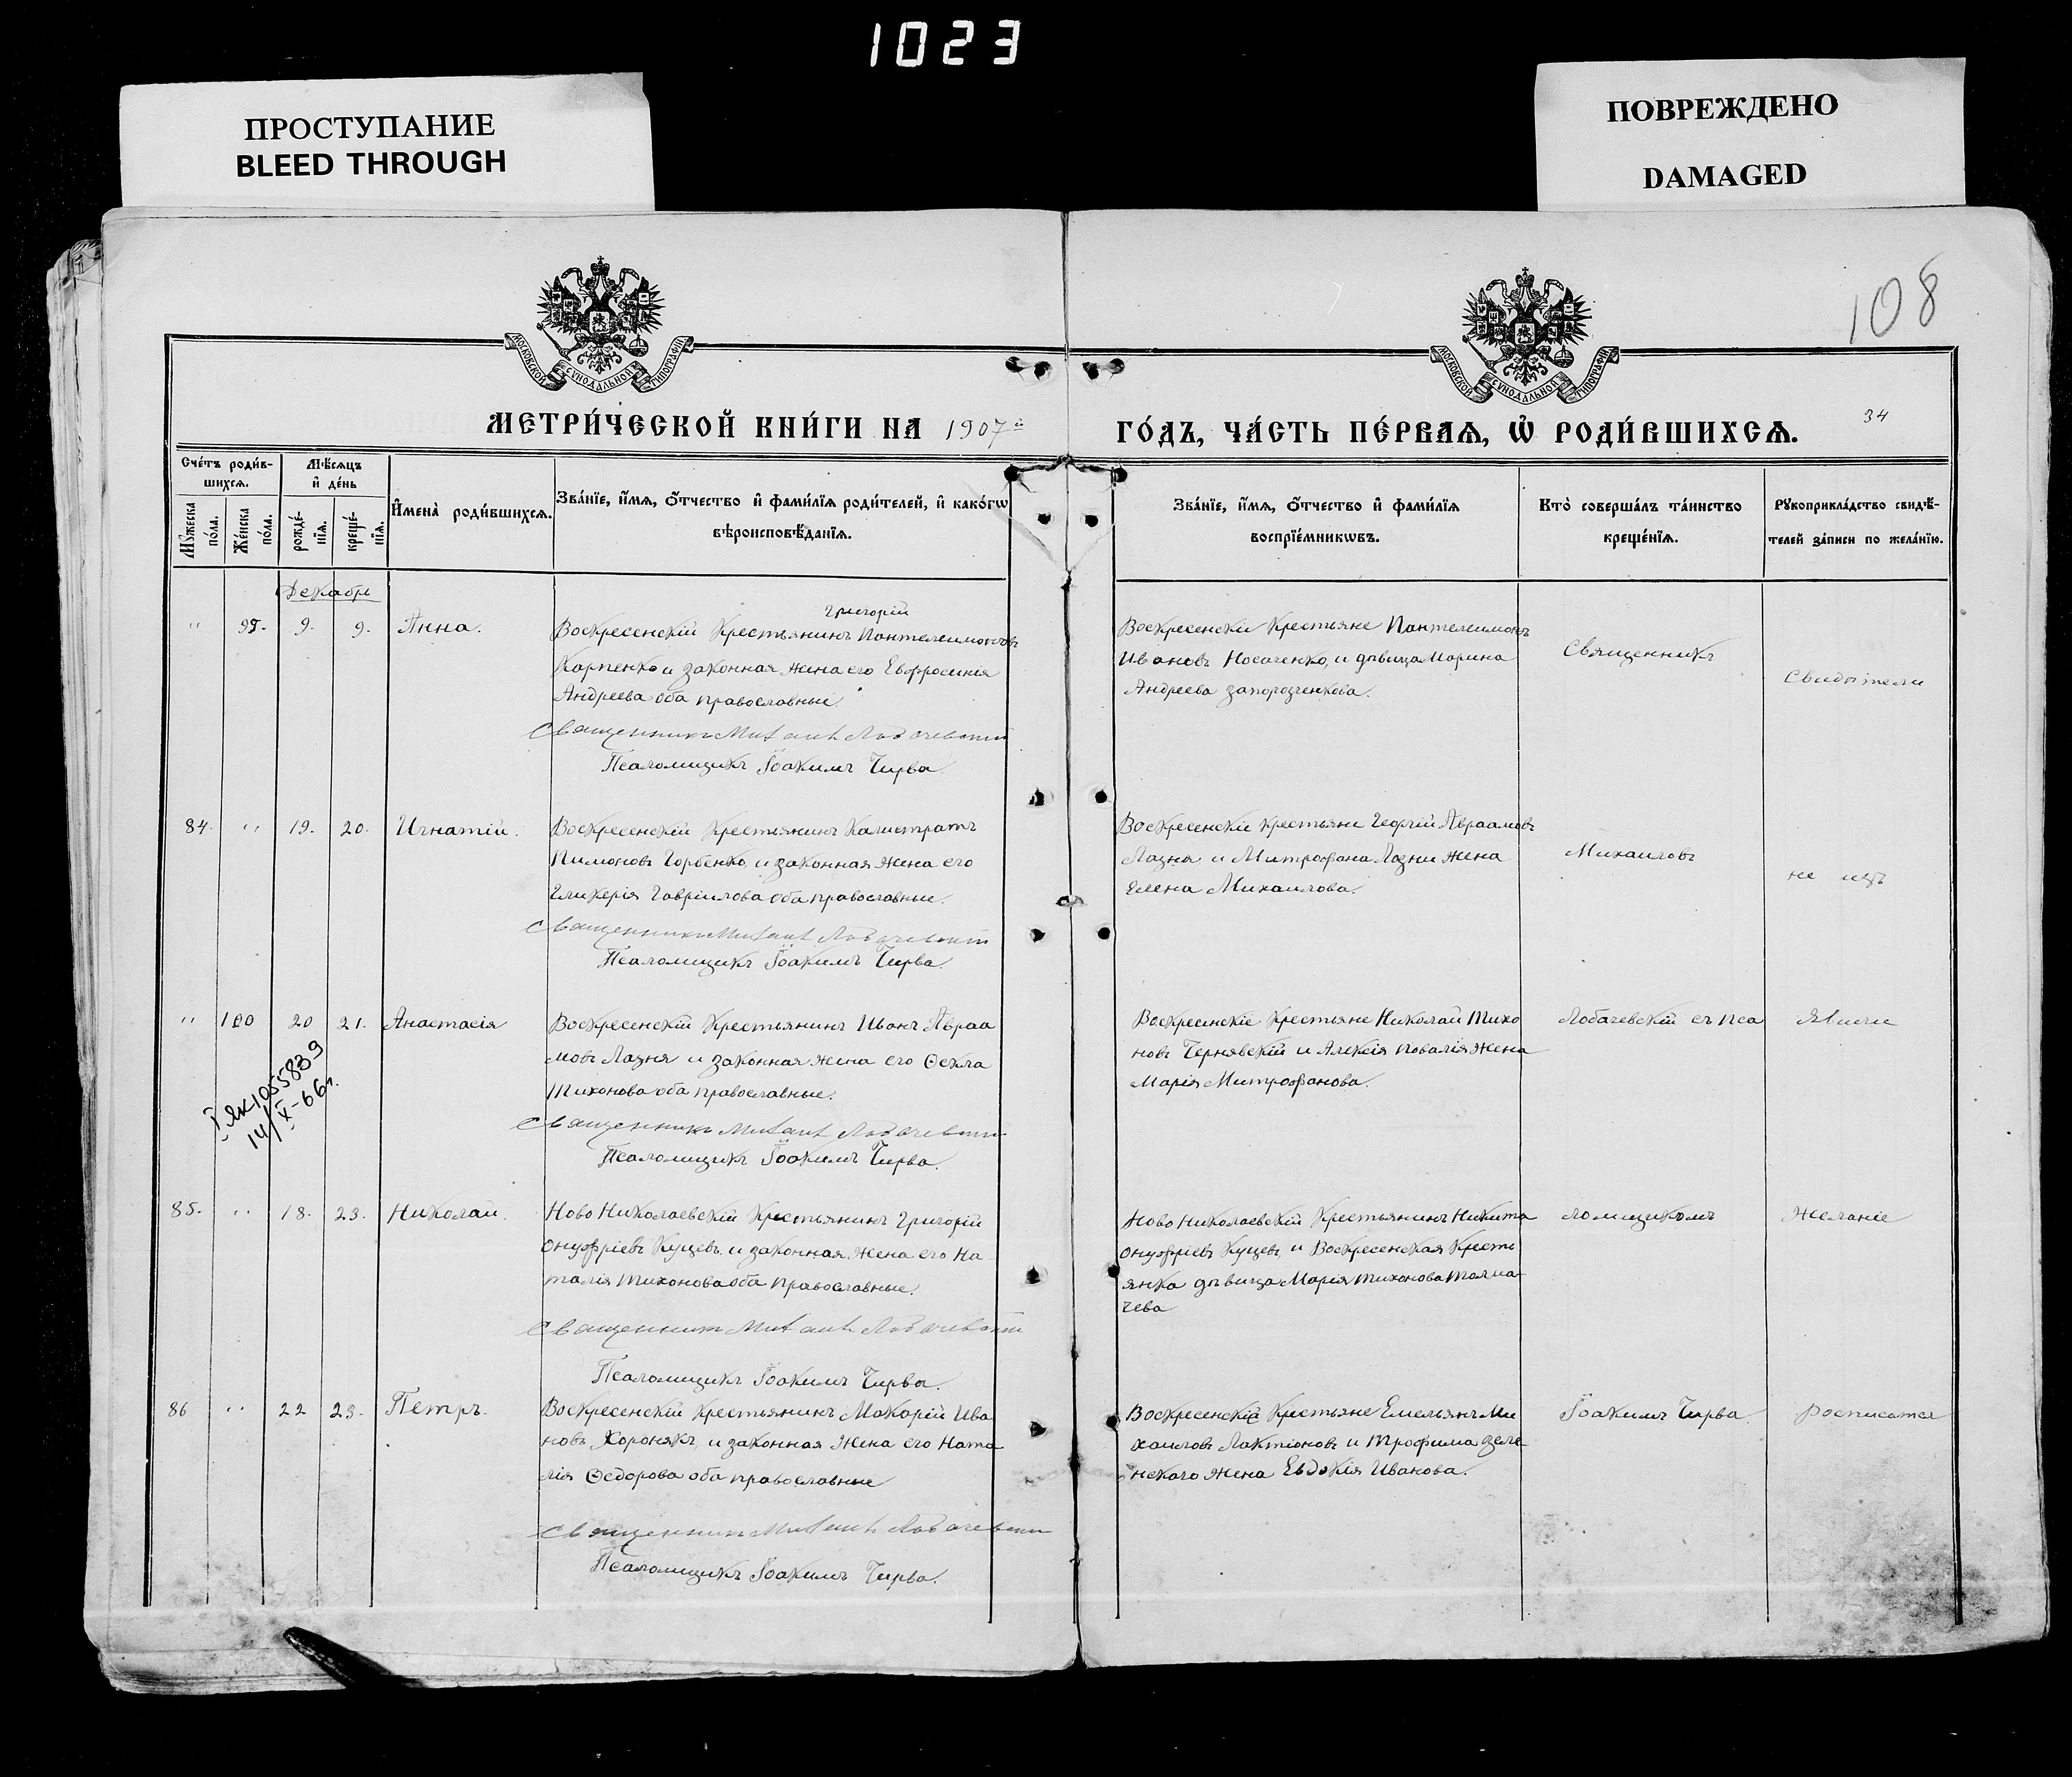 1023
ПРОСТУПАНИЕ
BLEED THROUGH
ПОВРЕЖДЕНО
DAMAGED
108
МОСКОВСКОЙ СѴНОДАЛЬНОЙ ТИПОГРАФІИ
МОСКОВСКОЙ СѴНОДАЛЬНОЙ ТИПОГРАФІИ
МЕТРИ́ЧЕСКОЙ КНИ́ГИ НА 1907й
ГО́ДЪ, ЧА́СТЬ ПЕ́РВАѦ, Ѡ҆ РОДИ́ВШИХСѦ.
34
Сче́тъ роди́в-
шихсѧ.
Мѣ́сѧцъ
и҆ де́нь
Мꙋ́жеска по́ла.
Же́нска по́ла.
рожде́-
нїѧ.
креще́-
нїѧ.
И҆мена̀ роди́вшихсѧ.
Зва́нїе, и҆́мѧ, ѻ҆́тчество и҆ фами́лїѧ роди́телей, и҆ како́гѡ
вѣроисповѣ́данїѧ.
Зва́нїе, и҆́мѧ, ѻ҆́тчество и҆ фами́лїѧ
воспрїе́мникѡвъ.
Кто̀ соверша́лъ та́инство
креще́нїѧ.
Рꙋкоприкла́дство свидѣ́-
телей за́писи по жела́нїю.
Декабрь
" 99. 9. 9. Анна.
Григорій
Воскресенскій Крестьянинъ Пантелеимоновъ
Карпенко и законная жена его Евфросинія
Андреева оба православные.
Священникъ Михаилъ Лобачевскій
Псаломщикъ Іоакимъ Чирва
Воскресенскіе Крестьяне Пантелеимонъ
Ивановъ Носаченко, и дѣвица Марина
Андреева Запорозченкова.
Священникъ
Свидѣтели
84. " 19. 20. Игнатій.
Воскресенскій Крестьянинъ Калистратъ
Пимоновъ Горбенко, и законная жена его
Гликерія Гавріилова оба православные.
Священникъ Михаилъ Лобачевскій
Псаломщикъ Іоакимъ Чирва.
Воскресенскіе крестьяне Георгій Авраамовъ
Лазня и Митрофана Лазни жена
Елена Михаилова.
Михаиловъ
не изъ
" 100 20 21. Анастасія
Воскресенскій Крестьянинъ Иванъ Авраа
мовъ Лазня и законная жена его Ѳекла
Тихонова оба православные.
Священникъ Михаилъ Лобачевскій
Псаломщикъ Іоакимъ Чирва.
Воскресенскіе Крестьяне Николай Тихо
новъ Чернявскій и Алексія Повалія жена
Марія Митрофанова.
Лобачевскій съ Пса
Явили
I ЯК 1055839
14/X-66г.
85. " 18. 23. Николай.
Ново Николаевскій Крестьянинъ Григорій
Онуфріевъ Куцевъ, и законная жена его На
талія Тихонова оба православные.
Священникъ Михаилъ Лобачевскій
Псаломщикъ Іоакимъ Чирва.
Ново Николаевскій Крестьянинъ Никита
Онуфріевъ Куцевъ, и Воскресенская Кресть
янка дѣвица Марія Тихонова Толма
чева
ломщикомъ
желаніе
86 " 22 23. Петръ.
Воскресенскій крестьянинъ Макарій Ива
новъ Хоронякъ, и законная жена его Ната
лія Ѳедорова оба православные
Священникъ Михаилъ Лобачевскій
Псаломщикъ Іоакимъ Чирва.
Воскресенскіе Крестьяне Емельянъ Ми
хаиловъ Лактіоновъ и Трофима Зеле
нскаго жена Евдокія Иванова.
Іоакимъ Чирва.
росписатся